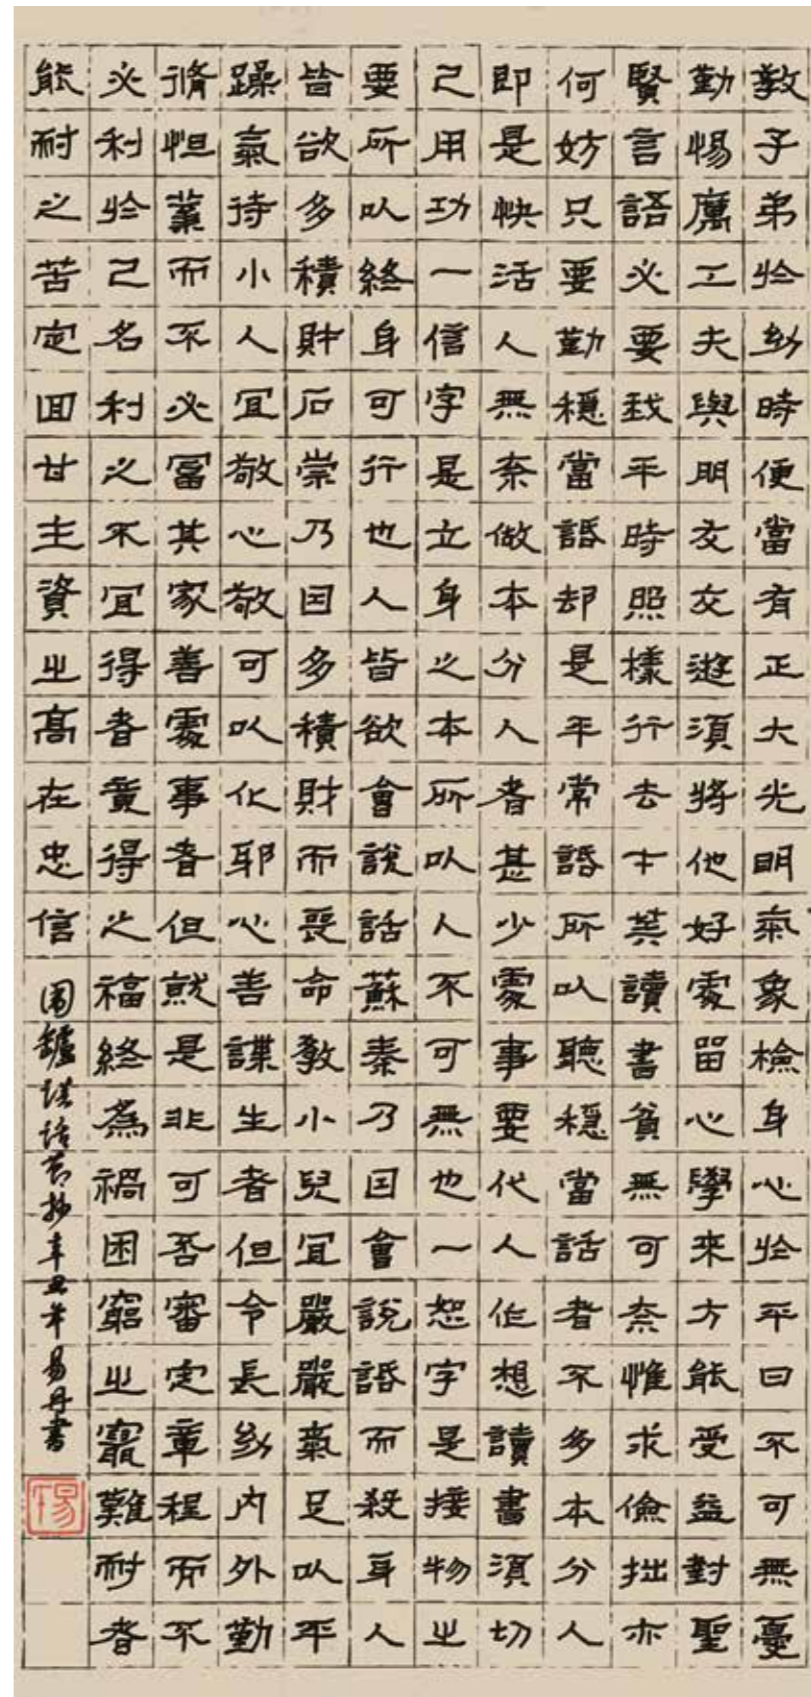 教子弟於幼時便當有正大光明氣象檢身心於平日不可無憂
勤惕厲工夫與朋友交遊須將他好處留心學來方能受益對聖
賢言語必要我平時照樣行去才算讀書貧無可奈惟求儉拙亦
何妨只要勤穩當話却是平常話所以聽穩當話者不多本分人
即是快活人無奈做本分人者甚少處事要代人作想讀書須切
己用功一信字是立身之本所以人不可無也一恕字是接物之
要所以終身可行也人皆欲會說話蘇秦乃因會說話而殺身人
皆欲多積財石崇乃因多積財而喪命教小兒宜嚴嚴氣足以平
躁氣待小人宜敬心敬可以化邪心善謀生者但令長幼內外勤
脩恒業而不必富其家善處事者但就是非可否審定章程而不
必利於己名利之不宜得者竟得之福終為禍困窮之最難耐者
能耐之苦定回甘生資之高在忠信
圍爐話節抄辛丑年易丹書